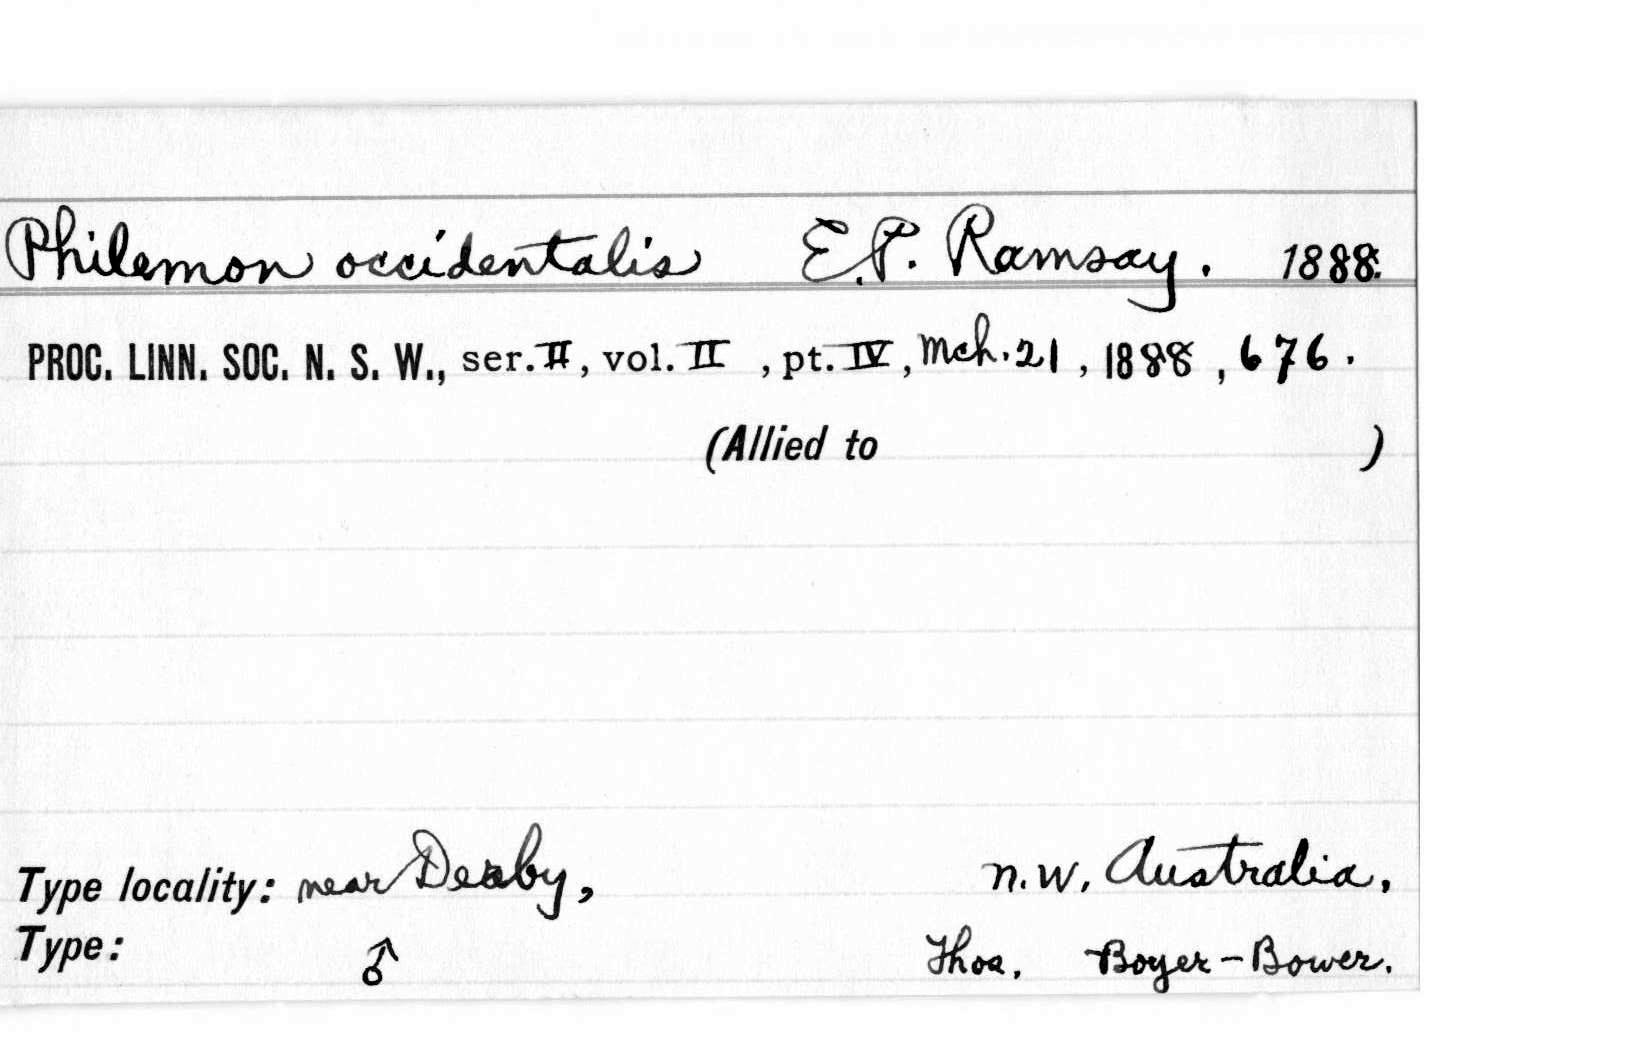 Philemon occidentalis E.P. Ramsay. 1888.
PROC. LINN. SOC. N. S. W., ser. II, vol. II, pt. IV, Mch. 21, 1888, 676.
(Allied to )
Type locality: near Derby, N.W. Australia,
Type: ♂ Thos. Boyer-Bower.